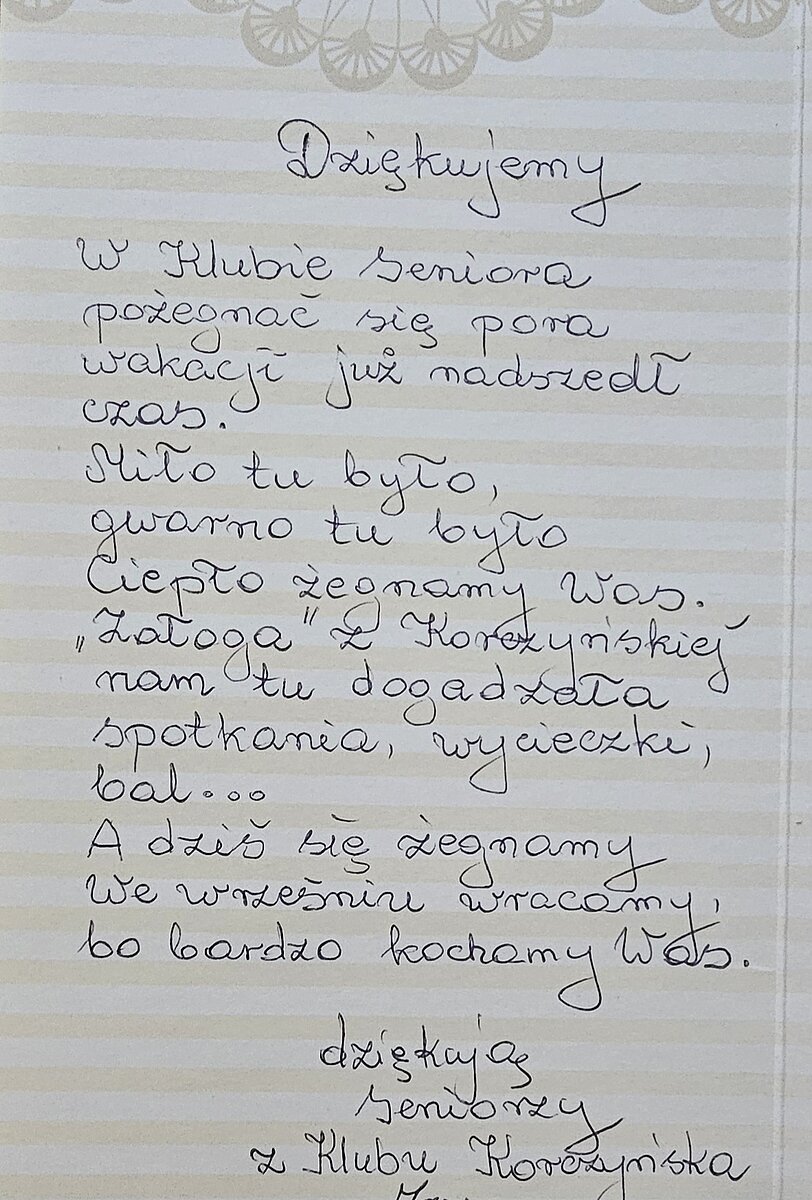 Dziękujemy
W Klubie Seniora
pożegnać się pora
wakacji już nadszedł
czas.
Miło tu było,
gwarno tu było
Ciepło żegnamy Was.
„Załoga" z Korczyńskiej
nam tu dogadzała
spotkania, wycieczki,
bal...
A dziś się żegnamy
We wrześniu wracamy,
bo bardzo kochamy Was.
dziękują
Seniorzy
z Klubu Korczyńska